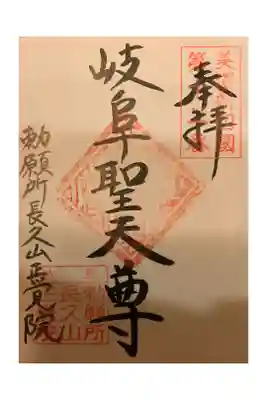 奉拝
岐阜聖天尊
勅願所長久山正覺院